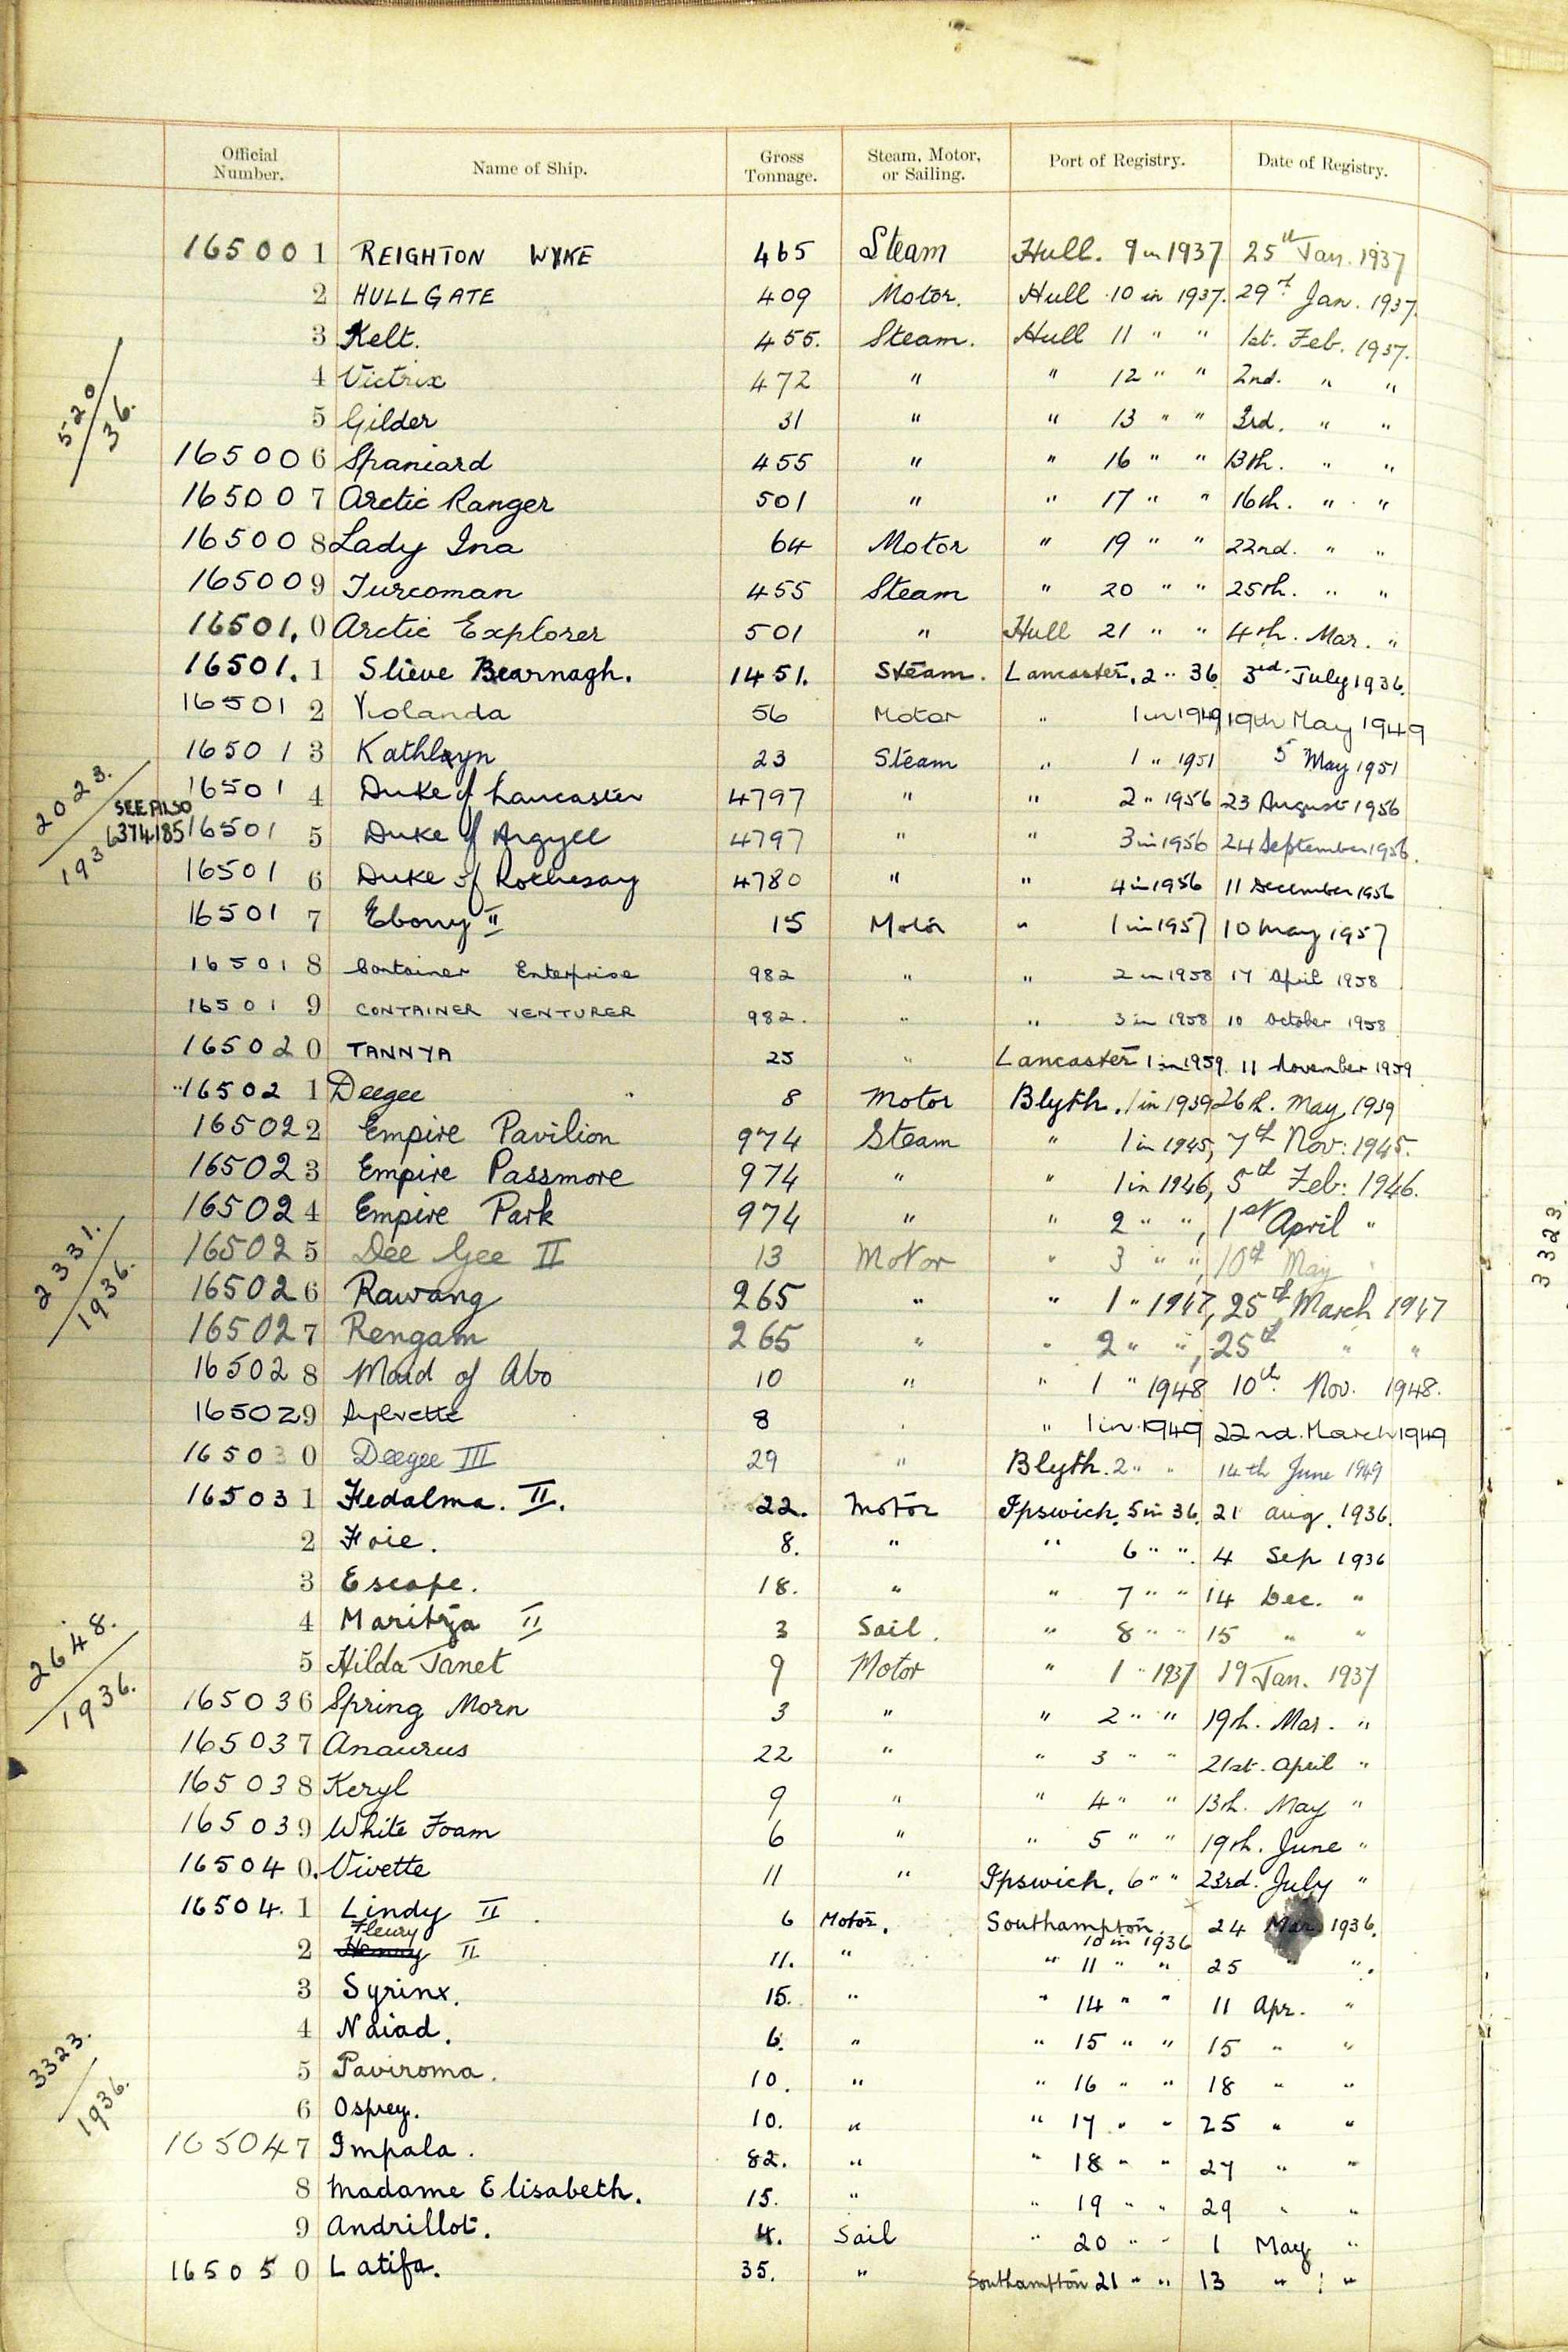 Official Number. Name of Ship. Gross Tonnage. Steam, Motor, or Sailing. Port of Registry. Date of Registry.
165001 REIGHTON WYKE 465 Steam Hull. 9 in 1937 25th Jan. 1937
2 HULLGATE 409 Motor. Hull 10 in 1937. 29th Jan. 1937.
3 Kelt. 455. Steam. Hull 11 " " 1st. Feb. 1937.
4 Victrix 472 " " 12 " " 2nd. " "
520/36.
5 Gilder 31 " " 13 " " 3rd. " "
165006 Spaniard 455 " " 16 " " 13th. " "
165007 Arctic Ranger 501 " " 17 " " 16th. " "
165008 Lady Ina 64 Motor " 19 " " 22nd. " "
165009 Turcoman 455 Steam " 20 " " 25th. " "
16501.0 Arctic Explorer 501 " Hull 21 " " 4th. Mar. "
16501.1 Slieve Bearnagh. 1451. Steam. Lancaster. 2 " 36 3rd July 1936.
165012 Violanda 56 Motor " 1 in 1949 19th May 1949
165013 Kathleyn 23 Steam " 1 " 1951 5 May 1951
2023./193
165014 Duke of Lancaster 4797 " " 2 " 1956 23 August 1956
SEE ALSO
6374185
165015 Duke of Argyll 4797 " " 3 in 1956 24 September 1956.
165016 Duke of Rothesay 4780 " " 4 in 1956 11 December 1956
165017 Ebony II 15 Motor " 1 in 1957 10 May 1957
165018 Container Enterprise 982 " " 2 in 1958 17 April 1958
165019 CONTAINER VENTURER 982. " " 3 in 1958 10 October 1958
165020 TANNYA 25 " Lancaster 1 in 1959. 11 November 1959
165021 Deegee 8 Motor Blyth. 1 in 1939 26th. May 1939
165022 Empire Pavilion 974 Steam " 1 in 1945, 7th Nov: 1945.
165023 Empire Passmore 974 " " 1 in 1946, 5th Feb: 1946.
165024 Empire Park 974 " " 2 " ", 1st April "
165025 Dee Gee II 13 Motor " 3 " ", 10th May "
2331./1936.
165026 Rawang 265 " " 1 " 1947, 25th March 1947
165027 Rengam 265 " " 2 " ", 25th " "
165028 Maid of Abo 10 " " 1 " 1948 10th. Nov. 1948.
165029 Sylvette 8 " " 1 in 1949 22nd. March 1949
165030 Deegee III 29 " Blyth. 2 " " 14th June 1949
165031 Fedalma. II. 22. Motor Ipswich. 5 in 36. 21 Aug. 1936.
2 Foie. 8. " " 6 " ". 4 Sep 1936
3 Escape. 18. " " 7 " " 14 Dec. "
4 Maritza II 3 Sail. " 8 " " 15 " "
2648./1936.
5 Hilda Janet 9 Motor " 1 " 1937 19 Jan. 1937
165036 Spring Morn 3 " " 2 " " 19th. Mar. "
165037 Anaurus 22 " " 3 " " 21st. April "
165038 Keryl 9 " " 4 " " 13th. May "
165039 White Foam 6 " " 5 " " 19th. June "
165040. Vivette 11 " Ipswich. 6 " " 23rd. July "
16504.1 Lindy II. 6 Motor. Southampton. 10 in 1936 24 Mar. 1936.
Fleury
2 Henry II 11. " " 11 " " 25 " ".
3 Syrinx. 15. " " 14 " " 11 Apr. "
4 Naiad. 6. " " 15 " " 15 " "
3323./1936.
5 Paviroma. 10. " " 16 " " 18 " "
6 Osprey. 10. " " 17 " " 25 " "
165047 Impala. 82. " " 18 " " 27 " "
8 Madame Elisabeth. 15. " " 19 " " 29 " "
9 Andrillot. 4. Sail " 20 " " 1 May "
165050 Latifa. 35. " Southampton 21 " " 13 " "
3323.